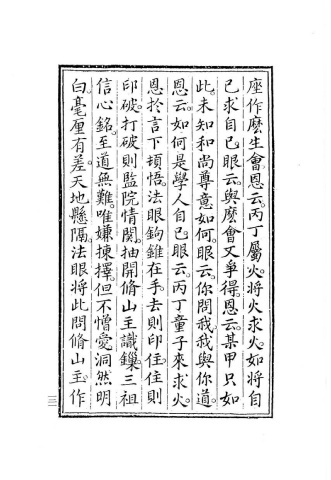 座作麼生會恩云丙丁屬火將火求火如將自
己求自己眼云與麼會又爭得恩云某甲只如
此未知和尚尊意如何眼云你問我我與你道
恩云如何是學人自己眼云丙丁童子來求火
恩於言下頓悟法眼鉤錐在手去則印住住則
印破打破則監院情關抽開脩山主識鏁三祖
信心銘至道無難唯嫌揀擇但不憎愛洞然明
白毫厘有差天地懸隔法眼將此問脩山主作
三